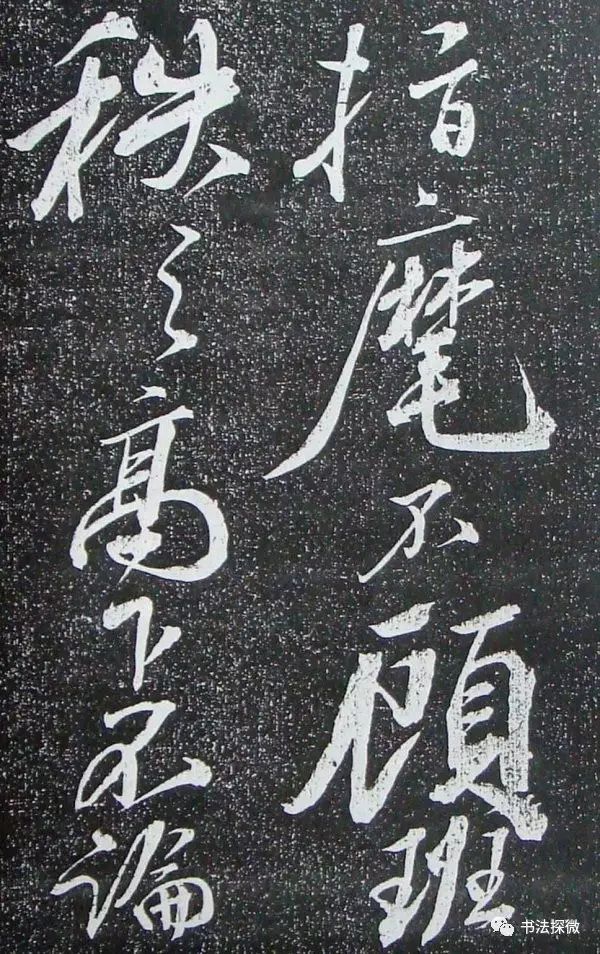 指麾不顧班
秩之高下不論
书法探微